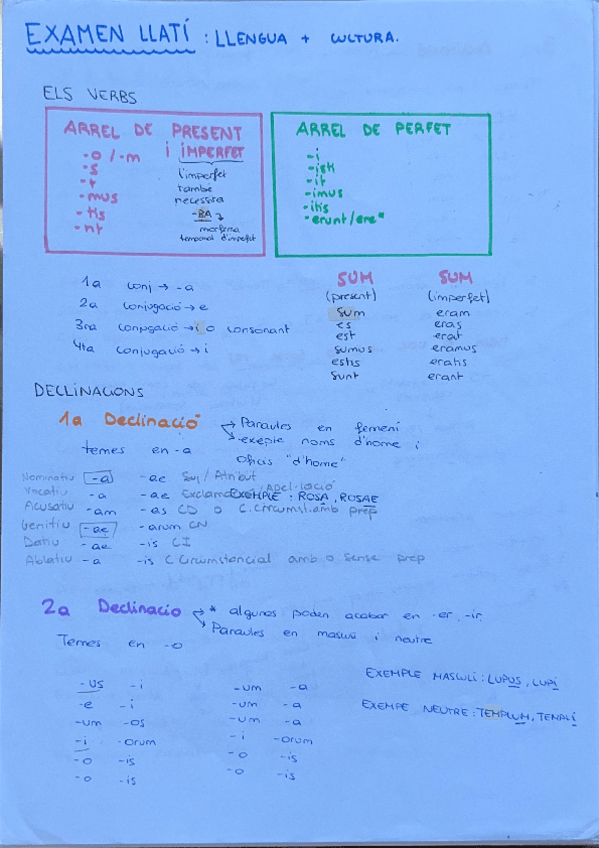 EXAMEN LLATÍ : LLENGUA + CULTURA.
ELS VERBS
ARREL DE PRESENT
I IMPERFET
-o / -m
-s
-t
-mus
-tis
-nt
L'imperfet
també
necessita
-BA
morfema
temporal d'imperfet
ARREL DE PERFET
-i
-isti
-it
-imus
-itis
-erunt/ere*
1a conj → -a
2a conjugació → e
3ra conjugació → i o consonant
4ta conjugació → i
SUM
(present)
sum
es
est
sumus
estis
sunt
SUM
(imperfet)
eram
eras
erat
eramus
eratis
erant
DECLINACIONS
1a Declinació → Paraules en femení
→ exepte noms d'home i
oficis "d'home"
temes en -a
Nominatiu -a -ae Suj / Atribut
Vocatiu -a -ae Exclamació/Apel·lació
EXEMPLE : ROSA, ROSAE
Acusatiu -am -as CD o C.Circumst. amb prep
Genitiu -ae -arum CN
Datiu -ae -is CI
Ablatiu -a -is C Circumstancial amb o sense prep
2a Declinacio → * algunes poden acabar en -er, -ir
→ Paraules en masculí i neutre
Temes en -o
EXEMPLE MASCULÍ : LUPUS, LUPI
EXEMPE NEUTRE : TEMPLUM, TEMPLI
-us -i -um -a
-e -i -um -a
-um -os -um -a
-i -orum -i -orum
-o -is -o -is
-o -is -o -is